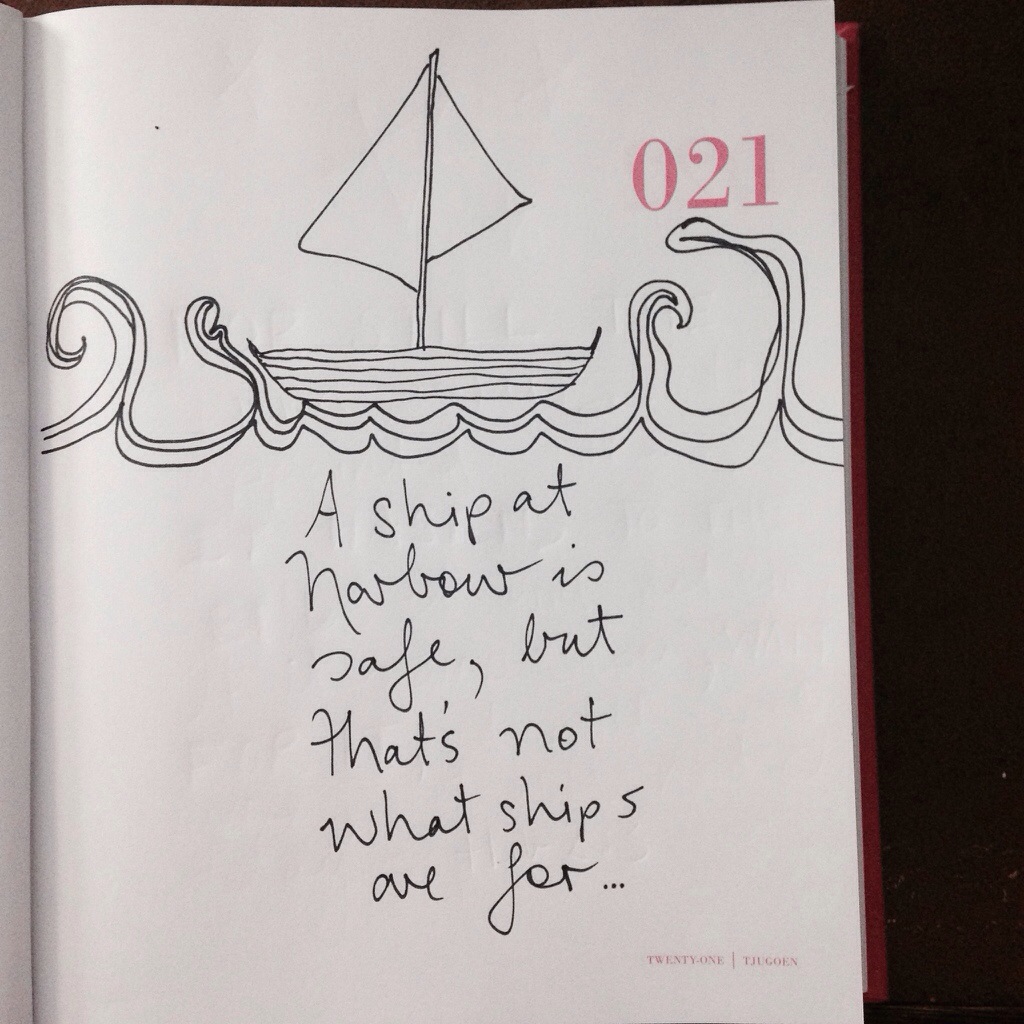 021
A ship at
harbour is
safe, but
that's not
what ships
are for...
TWENTY-ONE | TJUGOEN